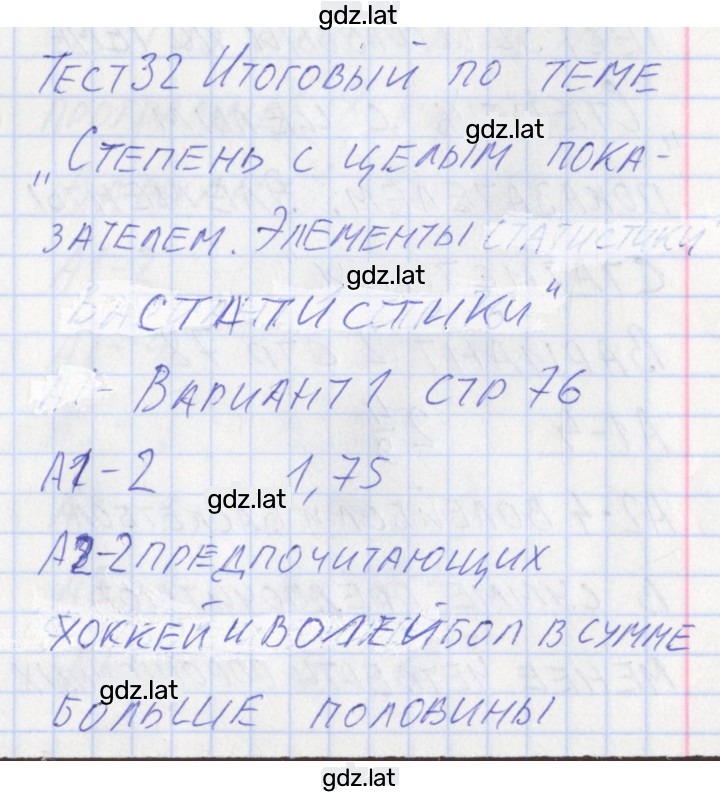 gdz.lat
Тест 32 Итоговый по теме
gdz.lat
„Степень с целым пока-
зателем. Элементы статистики"
gdz.lat
статистики"
Вариант 1 стр 76
А1-2 1,75
gdz.lat
А2-2 предпочитающих
хоккей и волейбол в сумме
gdz.lat
больше половины
gdz.lat